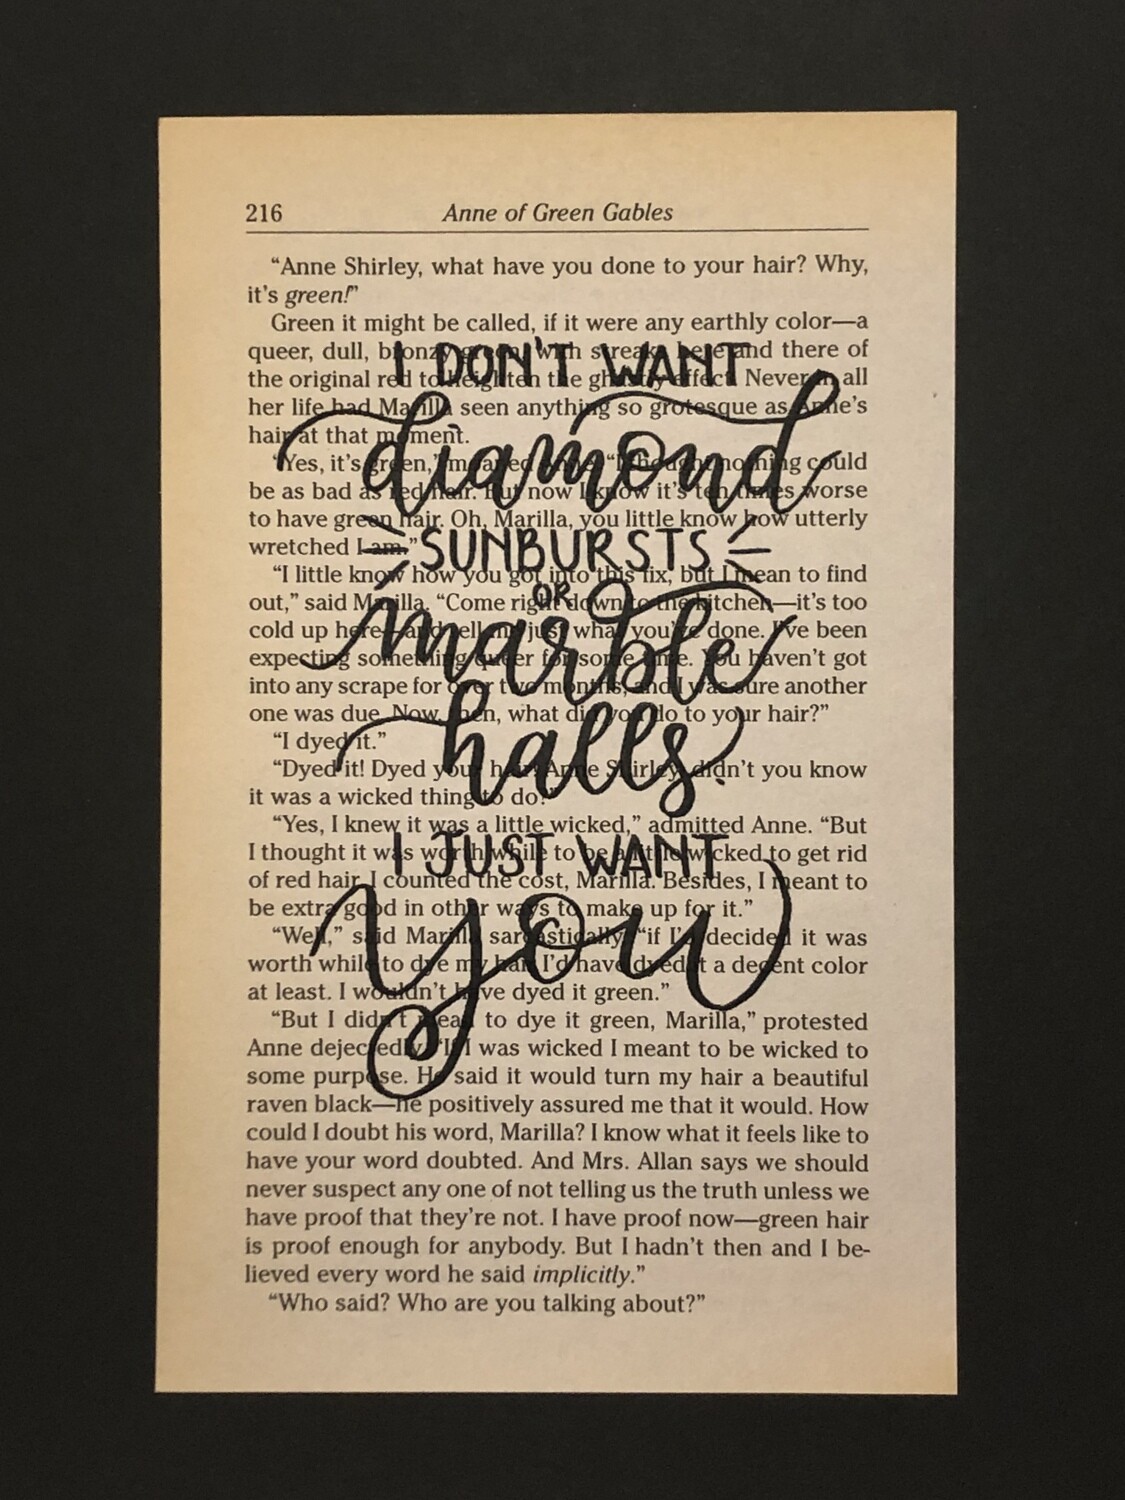 216 Anne of Green Gables
“Anne Shirley, what have you done to your hair? Why,
it's green!”
Green it might be called, if it were any earthly color—a
queer, dull, bronzy green, with streaks here and there of
the original red to heighten the ghastly effect. Never in all
her life had Marilla seen anything so grotesque as Anne's
hair at that moment.
“Yes, it's green,” moaned Anne. “I thought nothing could
be as bad as red hair. But now I know it's ten times worse
to have green hair. Oh, Marilla, you little know how utterly
wretched I am.”
“I little know how you got into this fix, but I mean to find
out,” said Marilla. “Come right down to the kitchen—it's too
cold up here—and tell me just what you've done. I've been
expecting something queer for some time. You haven't got
into any scrape for over two months, and I was sure another
one was due. Now, then, what did you do to your hair?”
“I dyed it.”
“Dyed it! Dyed your hair! Anne Shirley, didn't you know
it was a wicked thing to do?”
“Yes, I knew it was a little wicked,” admitted Anne. “But
I thought it was worth while to be a little wicked to get rid
of red hair. I counted the cost, Marilla. Besides, I meant to
be extra good in other ways to make up for it.”
“Well,” said Marilla sarcastically, “if I'd decided it was
worth while to dye my hair I'd have dyed it a decent color
at least. I wouldn't have dyed it green.”
“But I didn't mean to dye it green, Marilla,” protested
Anne dejectedly. “If I was wicked I meant to be wicked to
some purpose. He said it would turn my hair a beautiful
raven black—he positively assured me that it would. How
could I doubt his word, Marilla? I know what it feels like to
have your word doubted. And Mrs. Allan says we should
never suspect any one of not telling us the truth unless we
have proof that they're not. I have proof now—green hair
is proof enough for anybody. But I hadn't then and I be-
lieved every word he said implicitly.”
“Who said? Who are you talking about?”
I DON'T WANT
diamond
SUNBURSTS
OR
marble
halls.
I JUST WANT
you